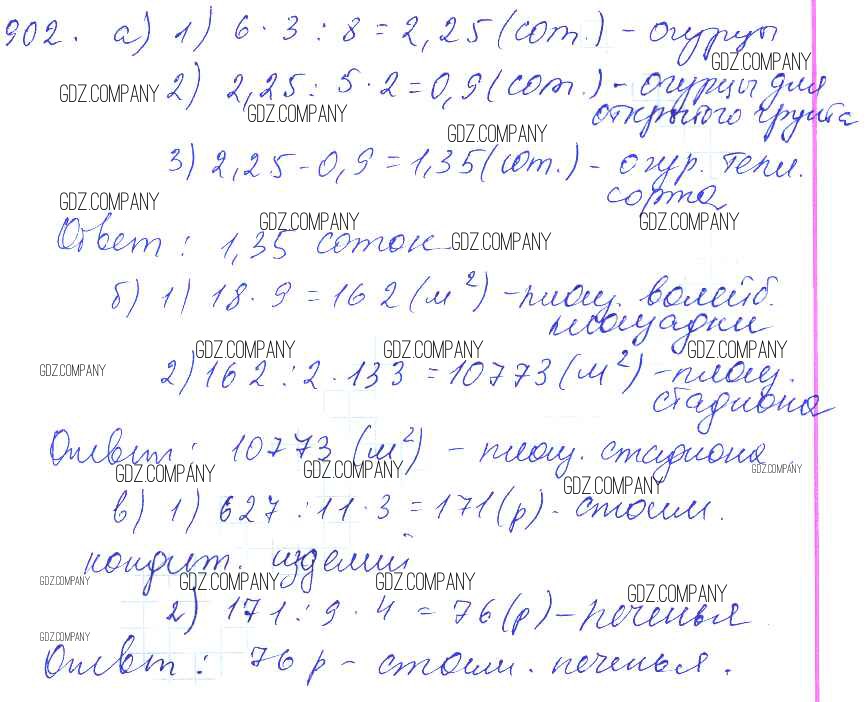 902. а) 1) 6 · 3 : 8 = 2,25 (сот.) - огурцы
GDZ.COMPANY
GDZ.COMPANY 2) 2,25 : 5 · 2 = 0,9 (сот.) - огурцы для
GDZ.COMPANY открытого грунта
GDZ.COMPANY
3) 2,25 - 0,9 = 1,35 (сот.) - огур. тепл.
GDZ.COMPANY сорта
GDZ.COMPANY GDZ.COMPANY
Ответ : 1,35 соток GDZ.COMPANY
б) 1) 18 · 9 = 162 (м²) - площ. волейб.
площадки
GDZ.COMPANY GDZ.COMPANY GDZ.COMPANY
GDZ.COMPANY 2) 162 : 2 · 133 = 10773 (м²) - площ.
стадиона
Ответ : 10773 (м²) - площ. стадиона
GDZ.COMPANY GDZ.COMPANY GDZ.COMPANY
GDZ.COMPANY
в) 1) 627 : 11 · 3 = 171 (р) - стоим.
кондит. изделий
GDZ.COMPANY GDZ.COMPANY GDZ.COMPANY
GDZ.COMPANY
2) 171 : 9 · 4 = 76 (р) - печенья
GDZ.COMPANY
Ответ : 76 р - стоим. печенья.